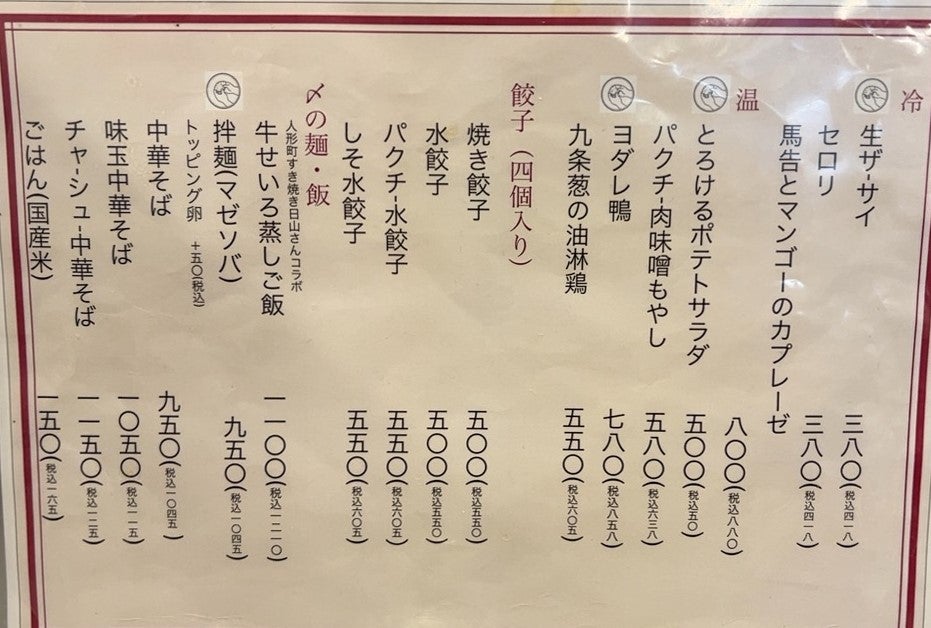 冷
生ザーサイ 三八〇(税込四一八)
セロリ 三八〇(税込四一八)
馬告とマンゴーのカプレーゼ 八〇〇(税込八八〇)
温
とろけるポテトサラダ 五〇〇(税込五〇)
パクチー肉味噌もやし 五八〇(税込六三八)
ヨダレ鴨 七八〇(税込八五八)
九条葱の油淋鶏 五五〇(税込六〇五)
餃子(四個入り)
焼き餃子 五〇〇(税込五五〇)
水餃子 五〇〇(税込五五〇)
パクチー水餃子 五五〇(税込六〇五)
しそ水餃子 五五〇(税込六〇五)
〆の麺・飯
人形町すき焼き日山さんコラボ
牛せいろ蒸しご飯 一一〇〇(税込一二一〇)
拌麺(マゼソバ) 九五〇(税込一〇四五)
トッピング卵 +五〇(税込)
中華そば 九五〇(税込一〇四五)
味玉中華そば 一〇五〇(税込一一五)
チャーシュー中華そば 一一五〇(税込一二五)
ごはん(国産米) 一五〇(税込一六五)